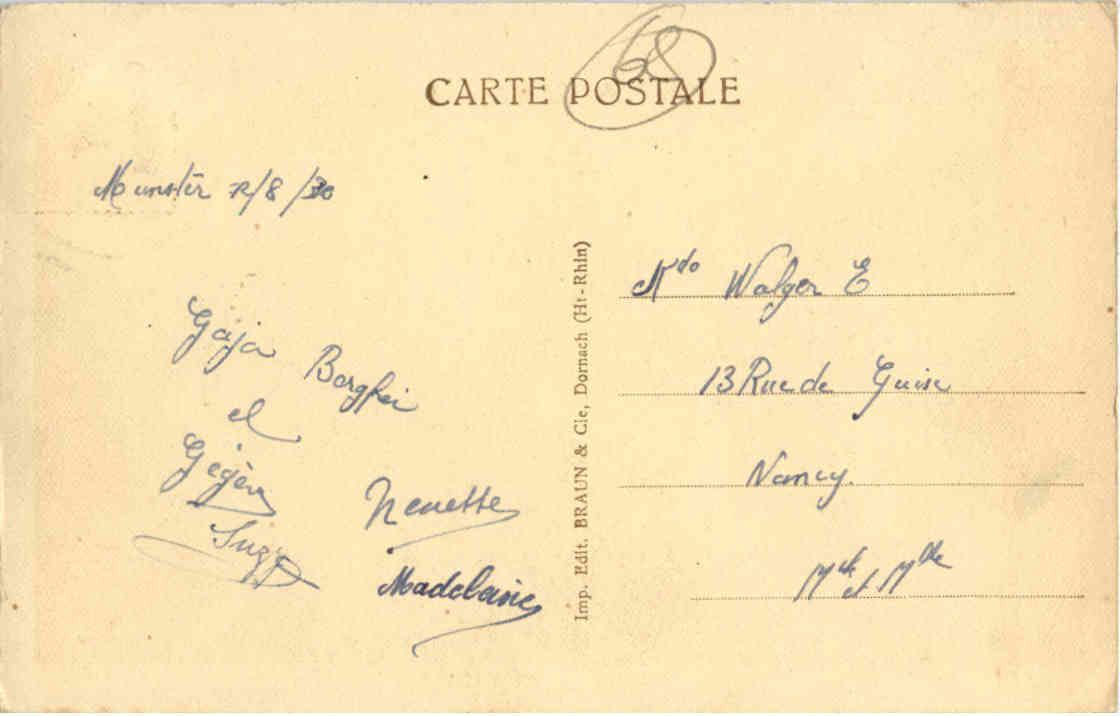 68
CARTE POSTALE
Munster 12/8/30
Gaja Borghi
et
Gégèn
Suzy
Nenette
Madeleine
Imp. Edit. BRAUN & Cie, Dornach (Ht-Rhin)
Walger E
13 Rue de Guise
Nancy.
Mth et Mlle